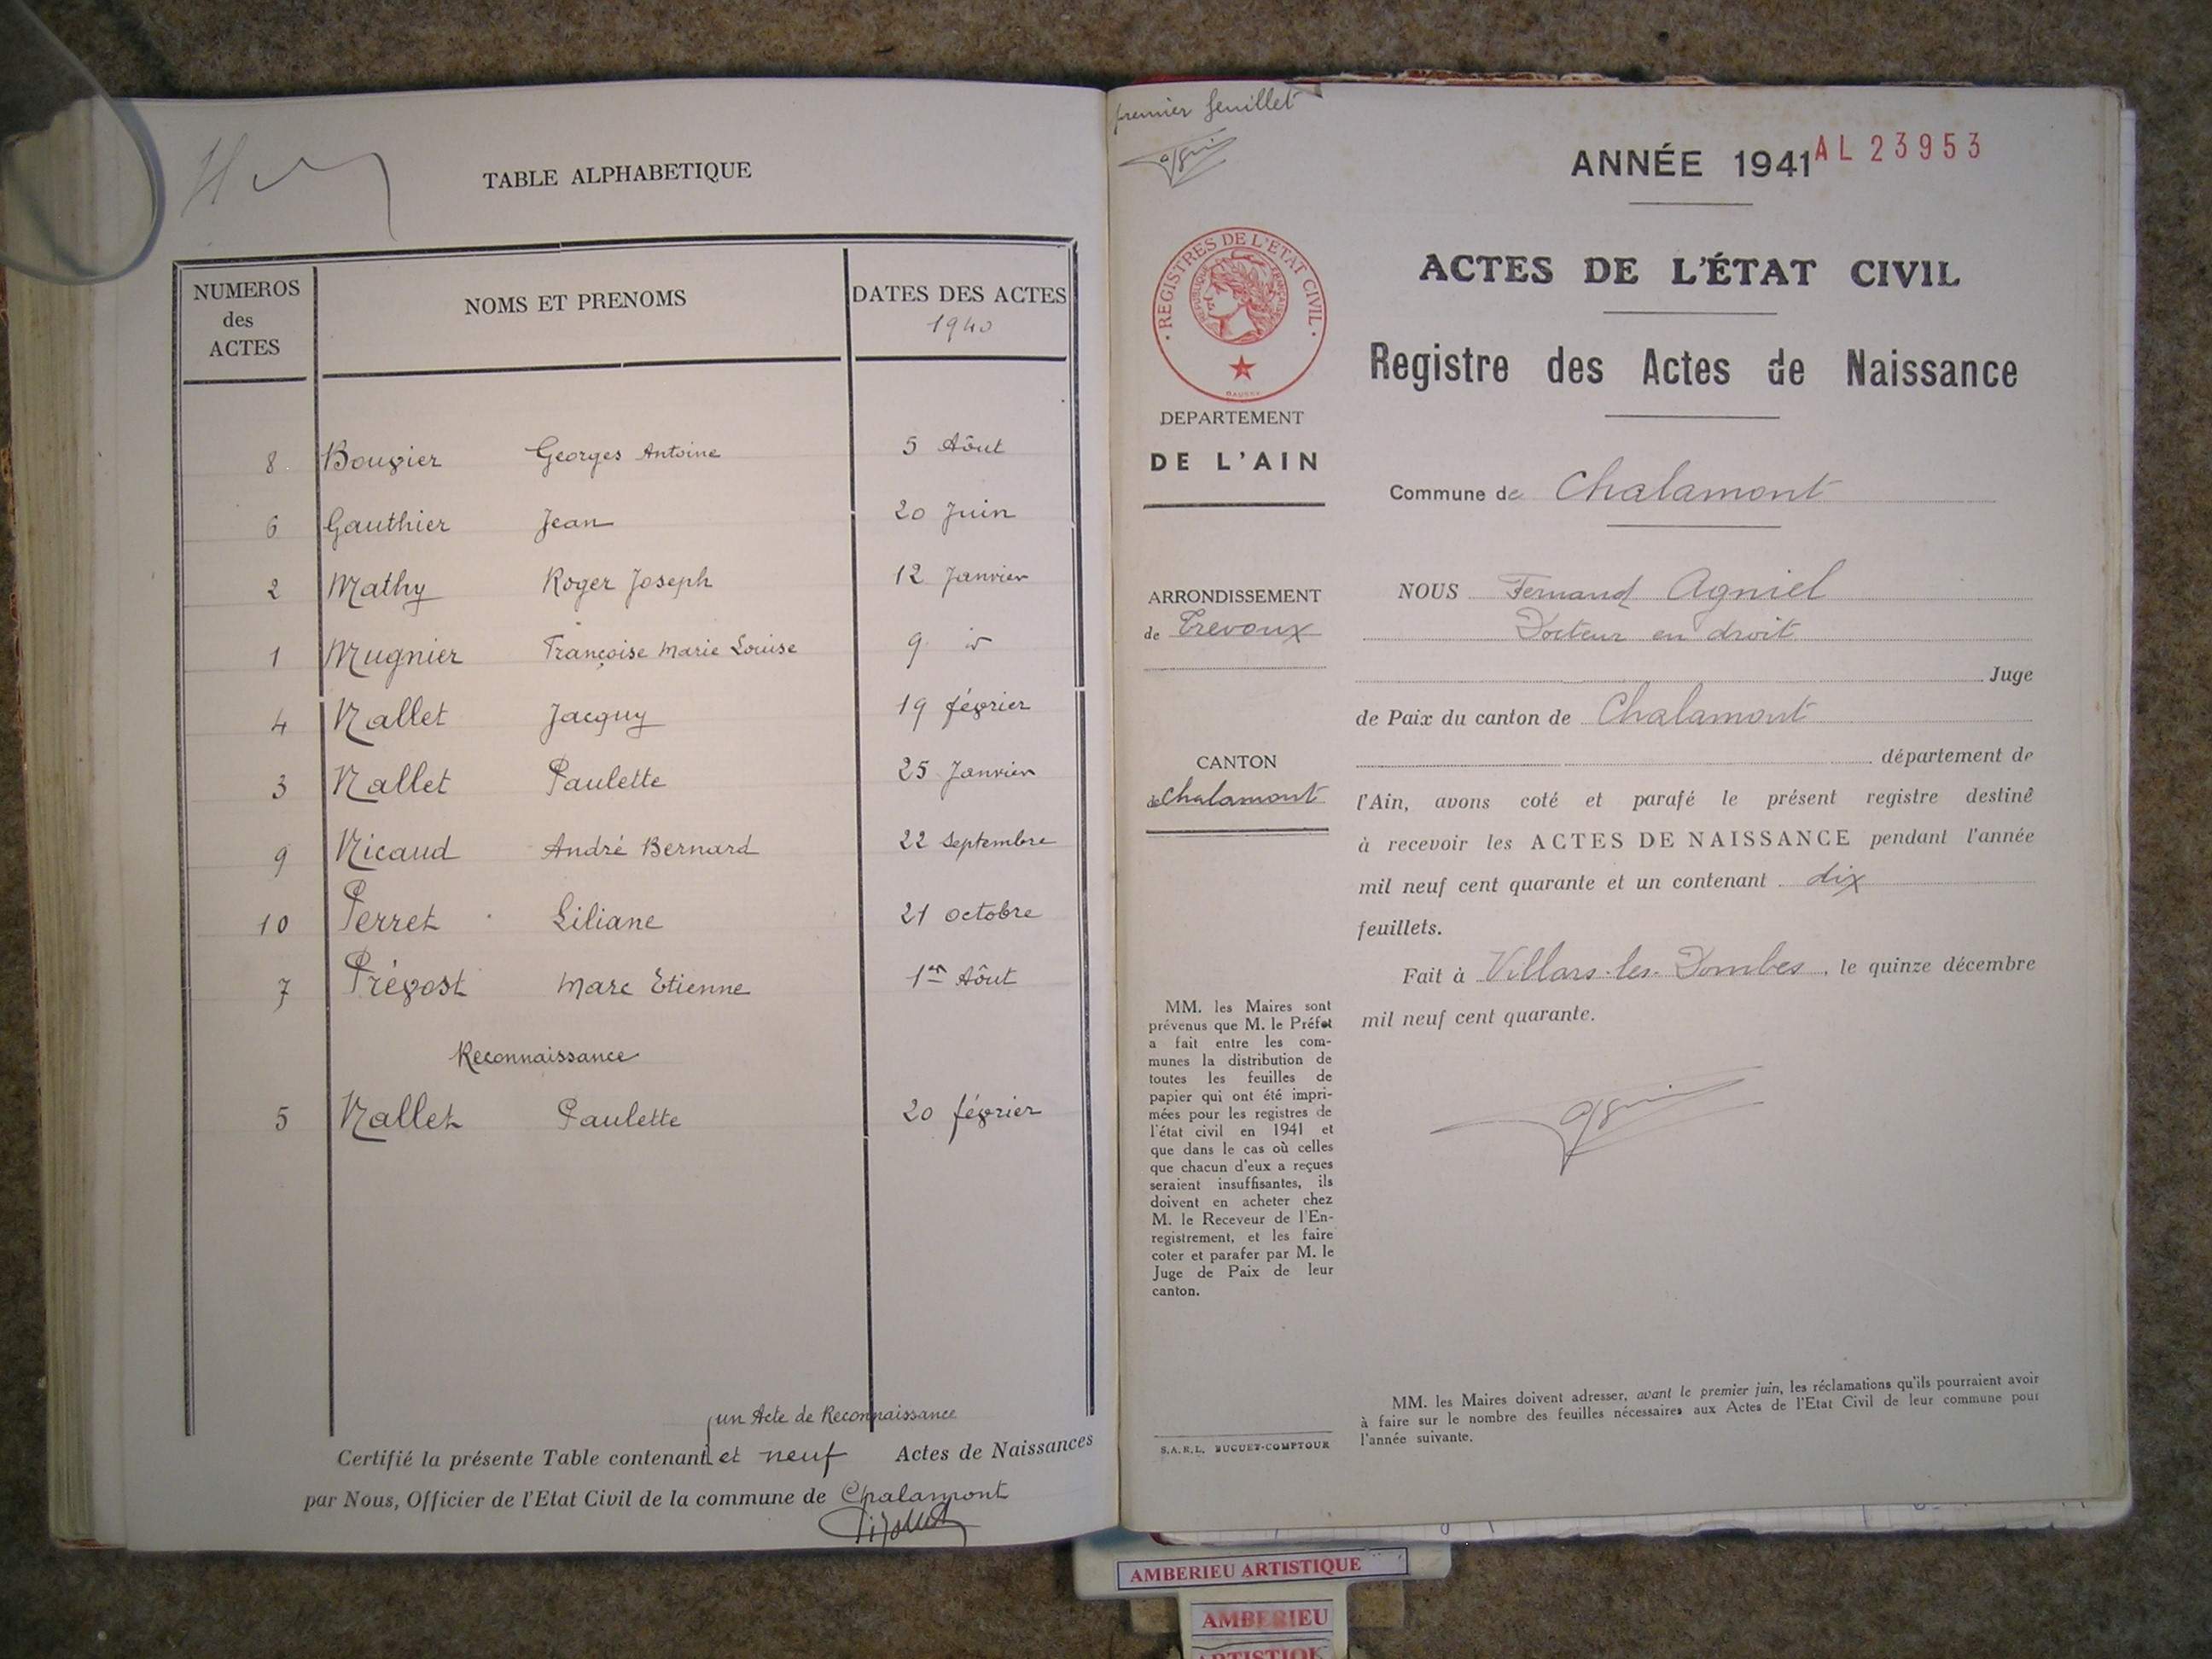 TABLE ALPHABETIQUE
NUMEROS des ACTES
NOMS ET PRENOMS
DATES DES ACTES 1940
8 Bouvier Georges Antoine 5 Aôut
6 Gauthier Jean 20 Juin
2 Mathy Roger Joseph 12 Janvier
1 Mugnier Françoise Marie Louise 9 id
4 Nallet Jacquy 19 février
3 Nallet Paulette 25 Janvier
9 Nicaud André Bernard 22 Septembre
10 Perret Liliane 21 octobre
7 Prévost Marc Etienne 1er Aôut
Reconnaissance
5 Nallet Paulette 20 février
un Acte de Reconnaissance
Certifié la présente Table contenant et neuf Actes de Naissances
par Nous, Officier de l'Etat Civil de la commune de Chalamont
premier feuillet
ANNÉE 1941 AL 23953
REGISTRES DE L'ÉTAT CIVIL
REPUBLIQUE FRANÇAISE
DEPARTEMENT
DE L'AIN
ARRONDISSEMENT
de Trevoux
CANTON
de Chalamont
MM. les Maires sont
prévenus que M. le Préfet
a fait entre les com-
munes la distribution de
toutes les feuilles de
papier qui ont été impri-
mées pour les registres de
l'état civil en 1941 et
que dans le cas où celles
que chacun d'eux a reçues
seraient insuffisantes, ils
doivent en acheter chez
M. le Receveur de l'En-
registrement, et les faire
coter et parafer par M. le
Juge de Paix de leur
canton.
S.A.R.L. BUGUET-COMPTOUR
ACTES DE L'ÉTAT CIVIL
Registre des Actes de Naissance
Commune de Chalamont
NOUS Fernand Agniel
Docteur en droit
Juge
de Paix du canton de Chalamont
département de
l'Ain, avons coté et parafé le présent registre destiné
à recevoir les ACTES DE NAISSANCE pendant l'année
mil neuf cent quarante et un contenant dix
feuillets.
Fait à Villars-les-Dombes, le quinze décembre
mil neuf cent quarante.
MM. les Maires doivent adresser, avant le premier juin, les réclamations qu'ils pourraient avoir
à faire sur le nombre des feuilles nécessaires aux Actes de l'Etat Civil de leur commune pour
l'année suivante.
AMBERIEU ARTISTIQUE
AMBERIEU